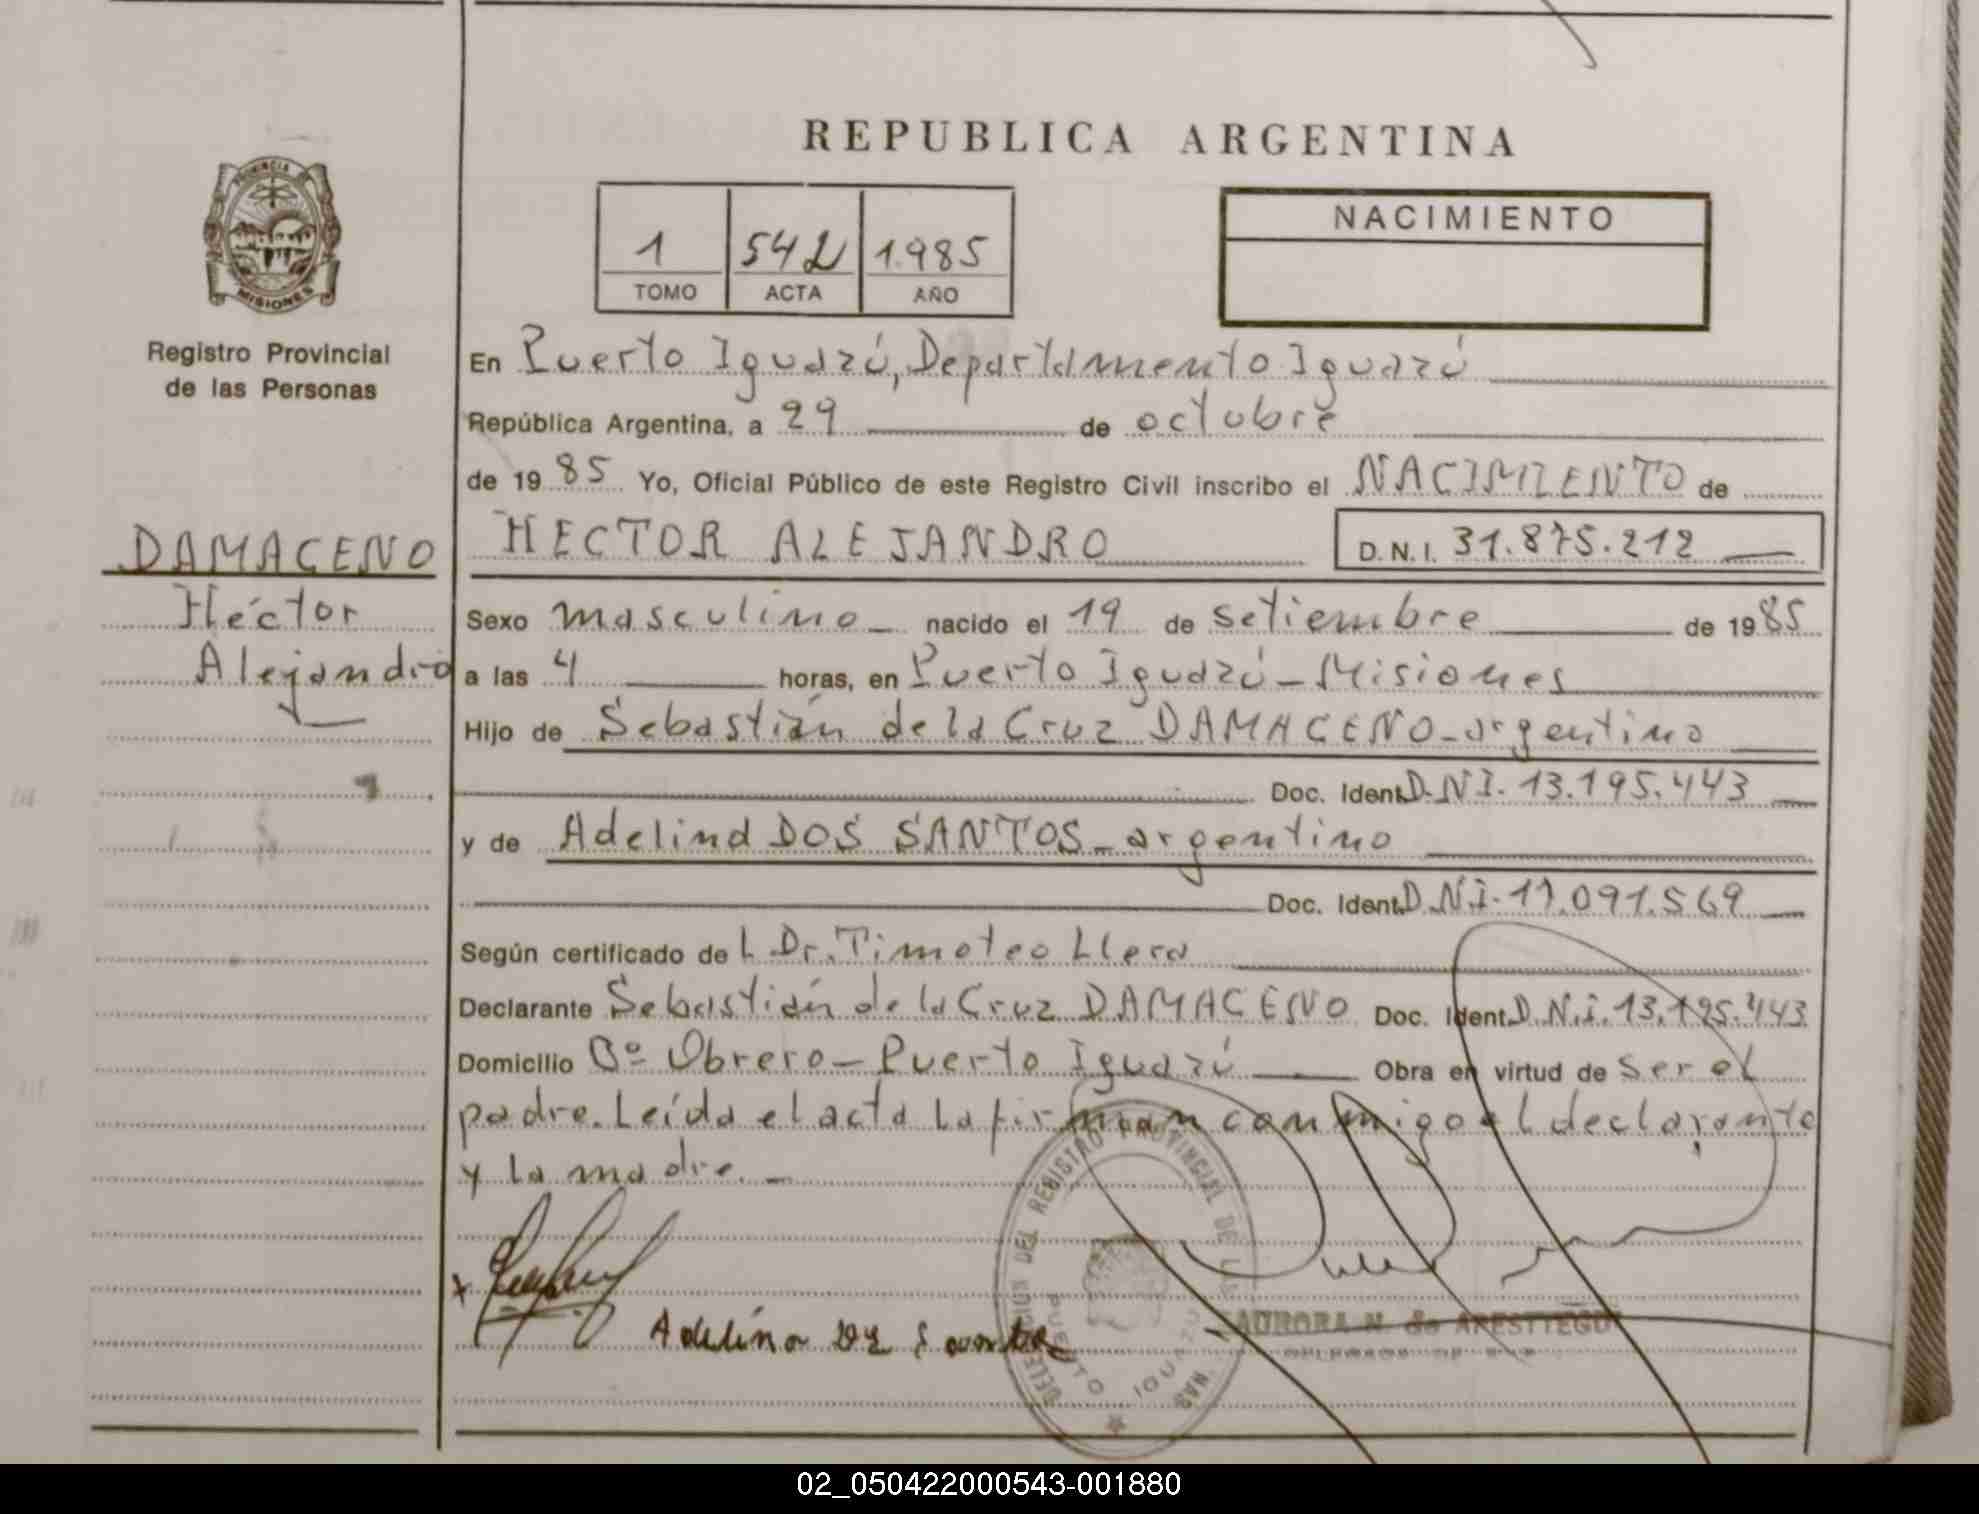 REPUBLICA ARGENTINA
PROVINCIA DE
MISIONES
Registro Provincial
de las Personas
1 542 1.985
TOMO ACTA AÑO
NACIMIENTO
En Puerto Iguazú, Departamento Iguazú
República Argentina, a 29 de octubre
de 1985 Yo, Oficial Público de este Registro Civil inscribo el NACIMIENTO de
DAMACENO
Héctor
Alejandro
HECTOR ALEJANDRO D.N.I. 31.875.212
Sexo masculino nacido el 19 de setiembre de 1985
a las 4 horas, en Puerto Iguazú - Misiones
Hijo de Sebastián de la Cruz DAMACENO - argentino
Doc. Ident. D.N.I. 13.195.443
y de Adelina DOS SANTOS - argentino
Doc. Ident. D.N.I. 11.091.569
Según certificado de L Dr. Timoteo Llera
Declarante Sebastián de la Cruz DAMACENO Doc. Ident. D.N.i. 13.195.443
Domicilio Bº Obrero - Puerto Iguazú Obra en virtud de ser el
padre. Leída el acta la firman conmigo el declarante
y la madre. -
DELEGACION DEL REGISTRO PROVINCIAL DE LAS
PUERTO IGUAZU
Adelina
AURORA N. de ARESTTEGUI
02_050422000543-001880